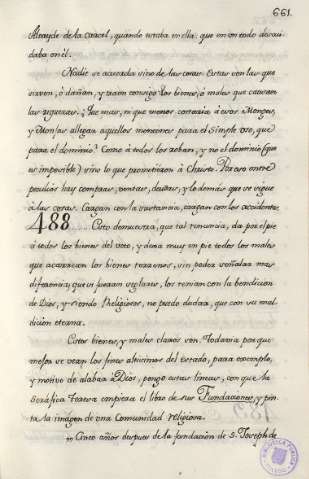 661.
Alcayde de la carcel, quando estaba en ella: que en un todo descui
daba en él.
Nadie se acuerda sino de las cosas. Estas son las que
sirven, ó dañan, y traen consigo los bienes, ó males que causan
las riquezas. ¿Que mas, ni que menos costaria á esos Monges,
y Monjas allegar aquellos menesteres para el simple uso, que
para el dominio? Como á todos les roban, y no el dominio (que
es imposible) sino lo que prometieron á Christo. Por eso entre
peculios hay compras, ventas, deudas, y lo demás que se sigue
á las cosas. Cargan con la sustancia, cargan con los accidentes.
488 Esto demuestra, que tal renuncia, da por el pie
á todos los bienes del voto, y dexa muy en pie todos los males
que acarrean los bienes terrenos, sin poder señalar mas
diferencia; que si fueran seglares, los tenian con la bendicion
de Dios, y siendo Religiosos, no puedo dudar, que con su mal
dicion eterna.
Estos bienes, y males claros son. Todavia porque
mejor se vean los fines altisimos del estado, para exemplo,
y motivo de alabar á Dios, pongo estas lineas, con que la
Seráfica Teresa empieza el libro de sus Fundaciones, y pin
ta la imagen de una Comunidad religiosa.
Cinco años despues de la fundacion de S. Joseph de